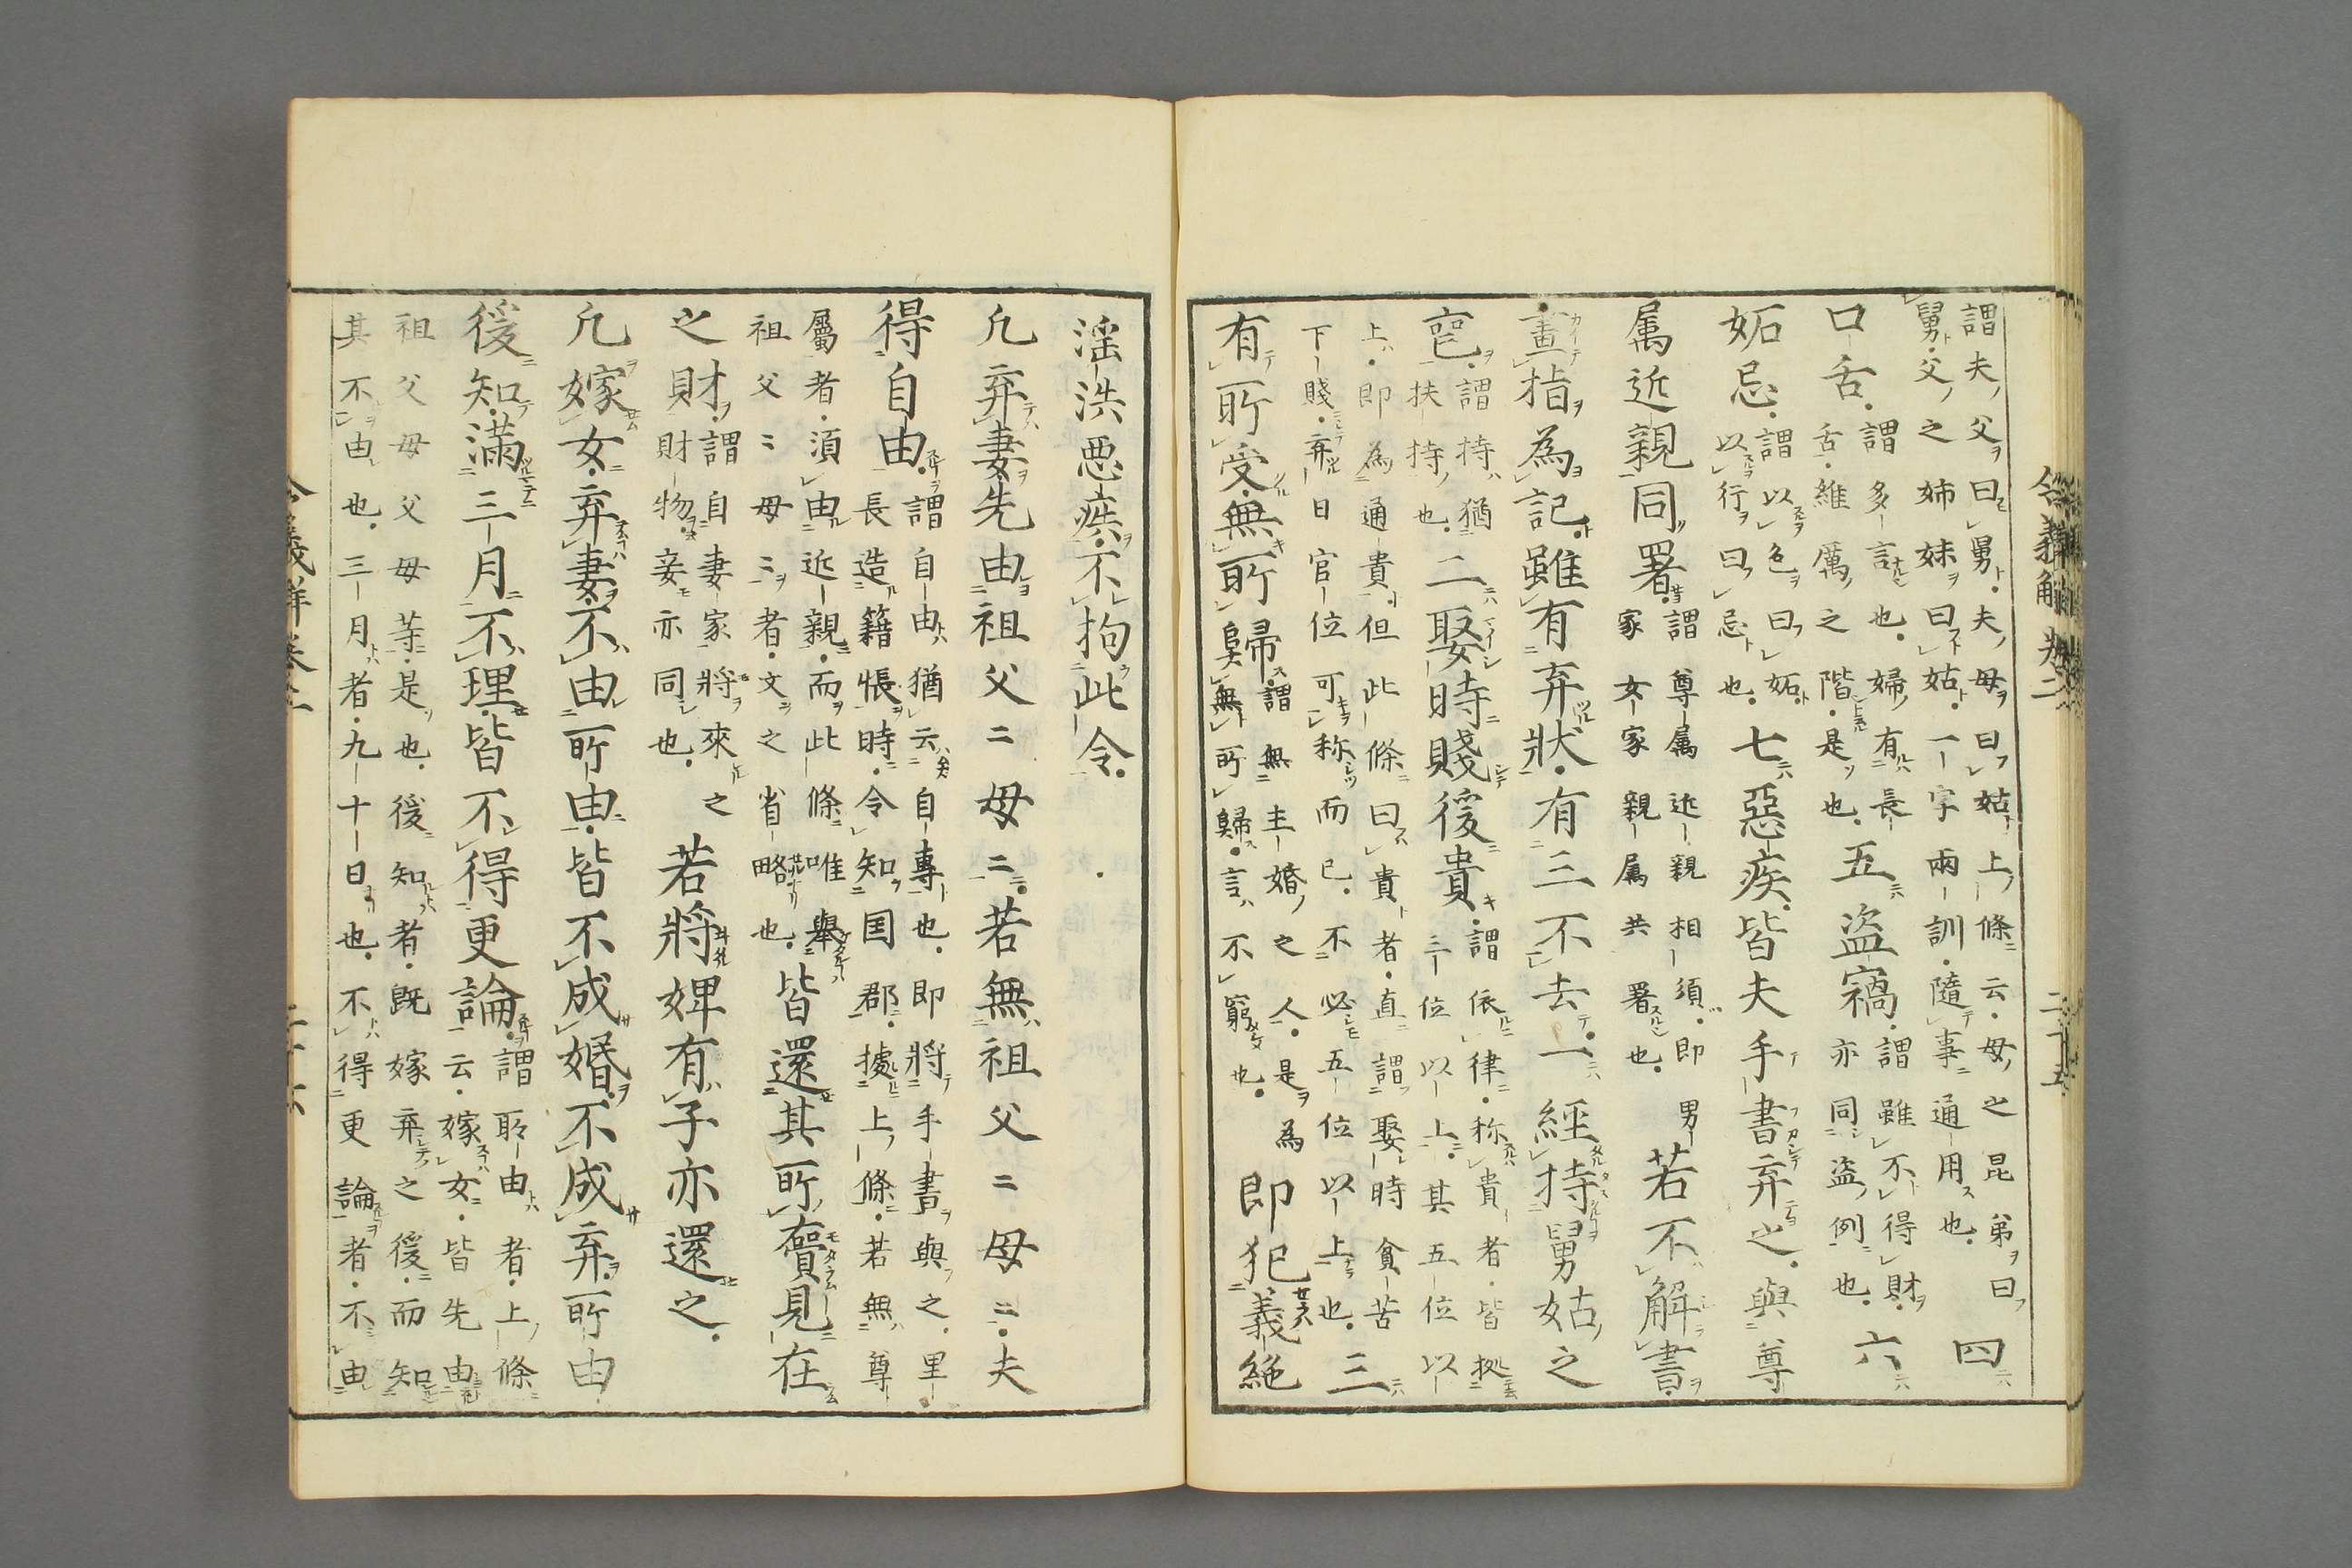 謂夫父曰舅夫母曰姑上條云母之昆弟曰
舅父之姉妹曰姑一字兩訓隨事通用也 四
口舌 謂多言也婦有長
舌維厲之階是也 五盜竊 謂雖不得財
亦同盜例也 六
妬忌 謂以色曰妬
以行曰忌也 七惡疾皆夫手書弃之與尊
属近親同署 謂尊属近親相須即男
家女家親属共署也 若不解書
畫指為記雖有弃狀有三不去一經持舅姑之
䘮 謂持猶
扶持也 二娶時賤後貴 謂依律称貴者皆拠
三位以上其五位以
上即為通貴但此條曰貴者直謂娶時貧苦
下賤弃日官位可称而已不必五位以上也 三
有所受無所歸 謂無主婚之人是為
與無所歸言不窮也 即犯義絶
令義解 巻二 二十五
淫泆悪疾不拘此令
凢弃妻先由祖父二母二若無祖父二母二夫
得自由 謂自由猶云自專也即將手書與之里
長造籍帳時令知国郡據上條若無尊
屬者須由近親而此條唯舉
祖父二母二者文之省略也 皆還其所賷見在
之財 謂自妻家將來之
財物妾亦同也 若將婢有子亦還之
凢嫁女弃妻不由所由皆不成婚不成弃所由
後知滿三月不理皆不得更論 謂所由者上條
云嫁女皆先由
祖父母父母等是也後知者既嫁弃之後而知
其不由也三月者九十日也不得更論者不由